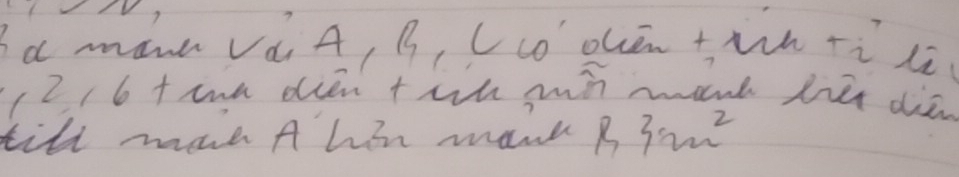 Ba mảnh vải A, B, C có diện tích tỉ lệ
, 2, 6 tính diện tích mỗi mảnh biết diện
tích mảnh A hơn mảnh B 3m²